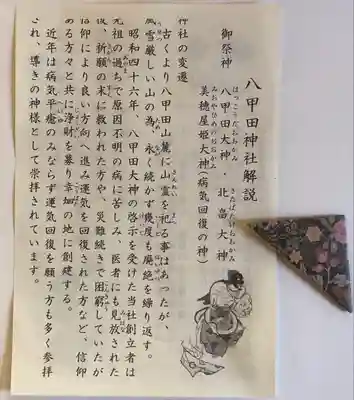 八甲田神社解説
御祭神
はっこうだおおかみ きたばたけおおかみ
八甲田大神・北畠大神
みおやひめのおおかみ
美穂屋姫大神(病気回復の神)
神社の変遷
古くより八甲田山麓に山霊を祀る事はあったが、
風雪厳しい山の為、永く続かず幾度も廃絶を繰り返す。
昭和四十六年、八甲田大神の啓示を受けた当社創立者は
先祖の過ちで原因不明の病に苦しみ、医者にも見放された
後、祈願の末に救われた方や、災難続きで困窮していたが
信仰により良い方向へ進み運気を回復された方など、信仰
ある方々と共に浄財を募り幸畑の地に創建する。
近年は病気平癒のみならず運気回復を願う方も多く参拝
され、導きの神様として崇拝されています。